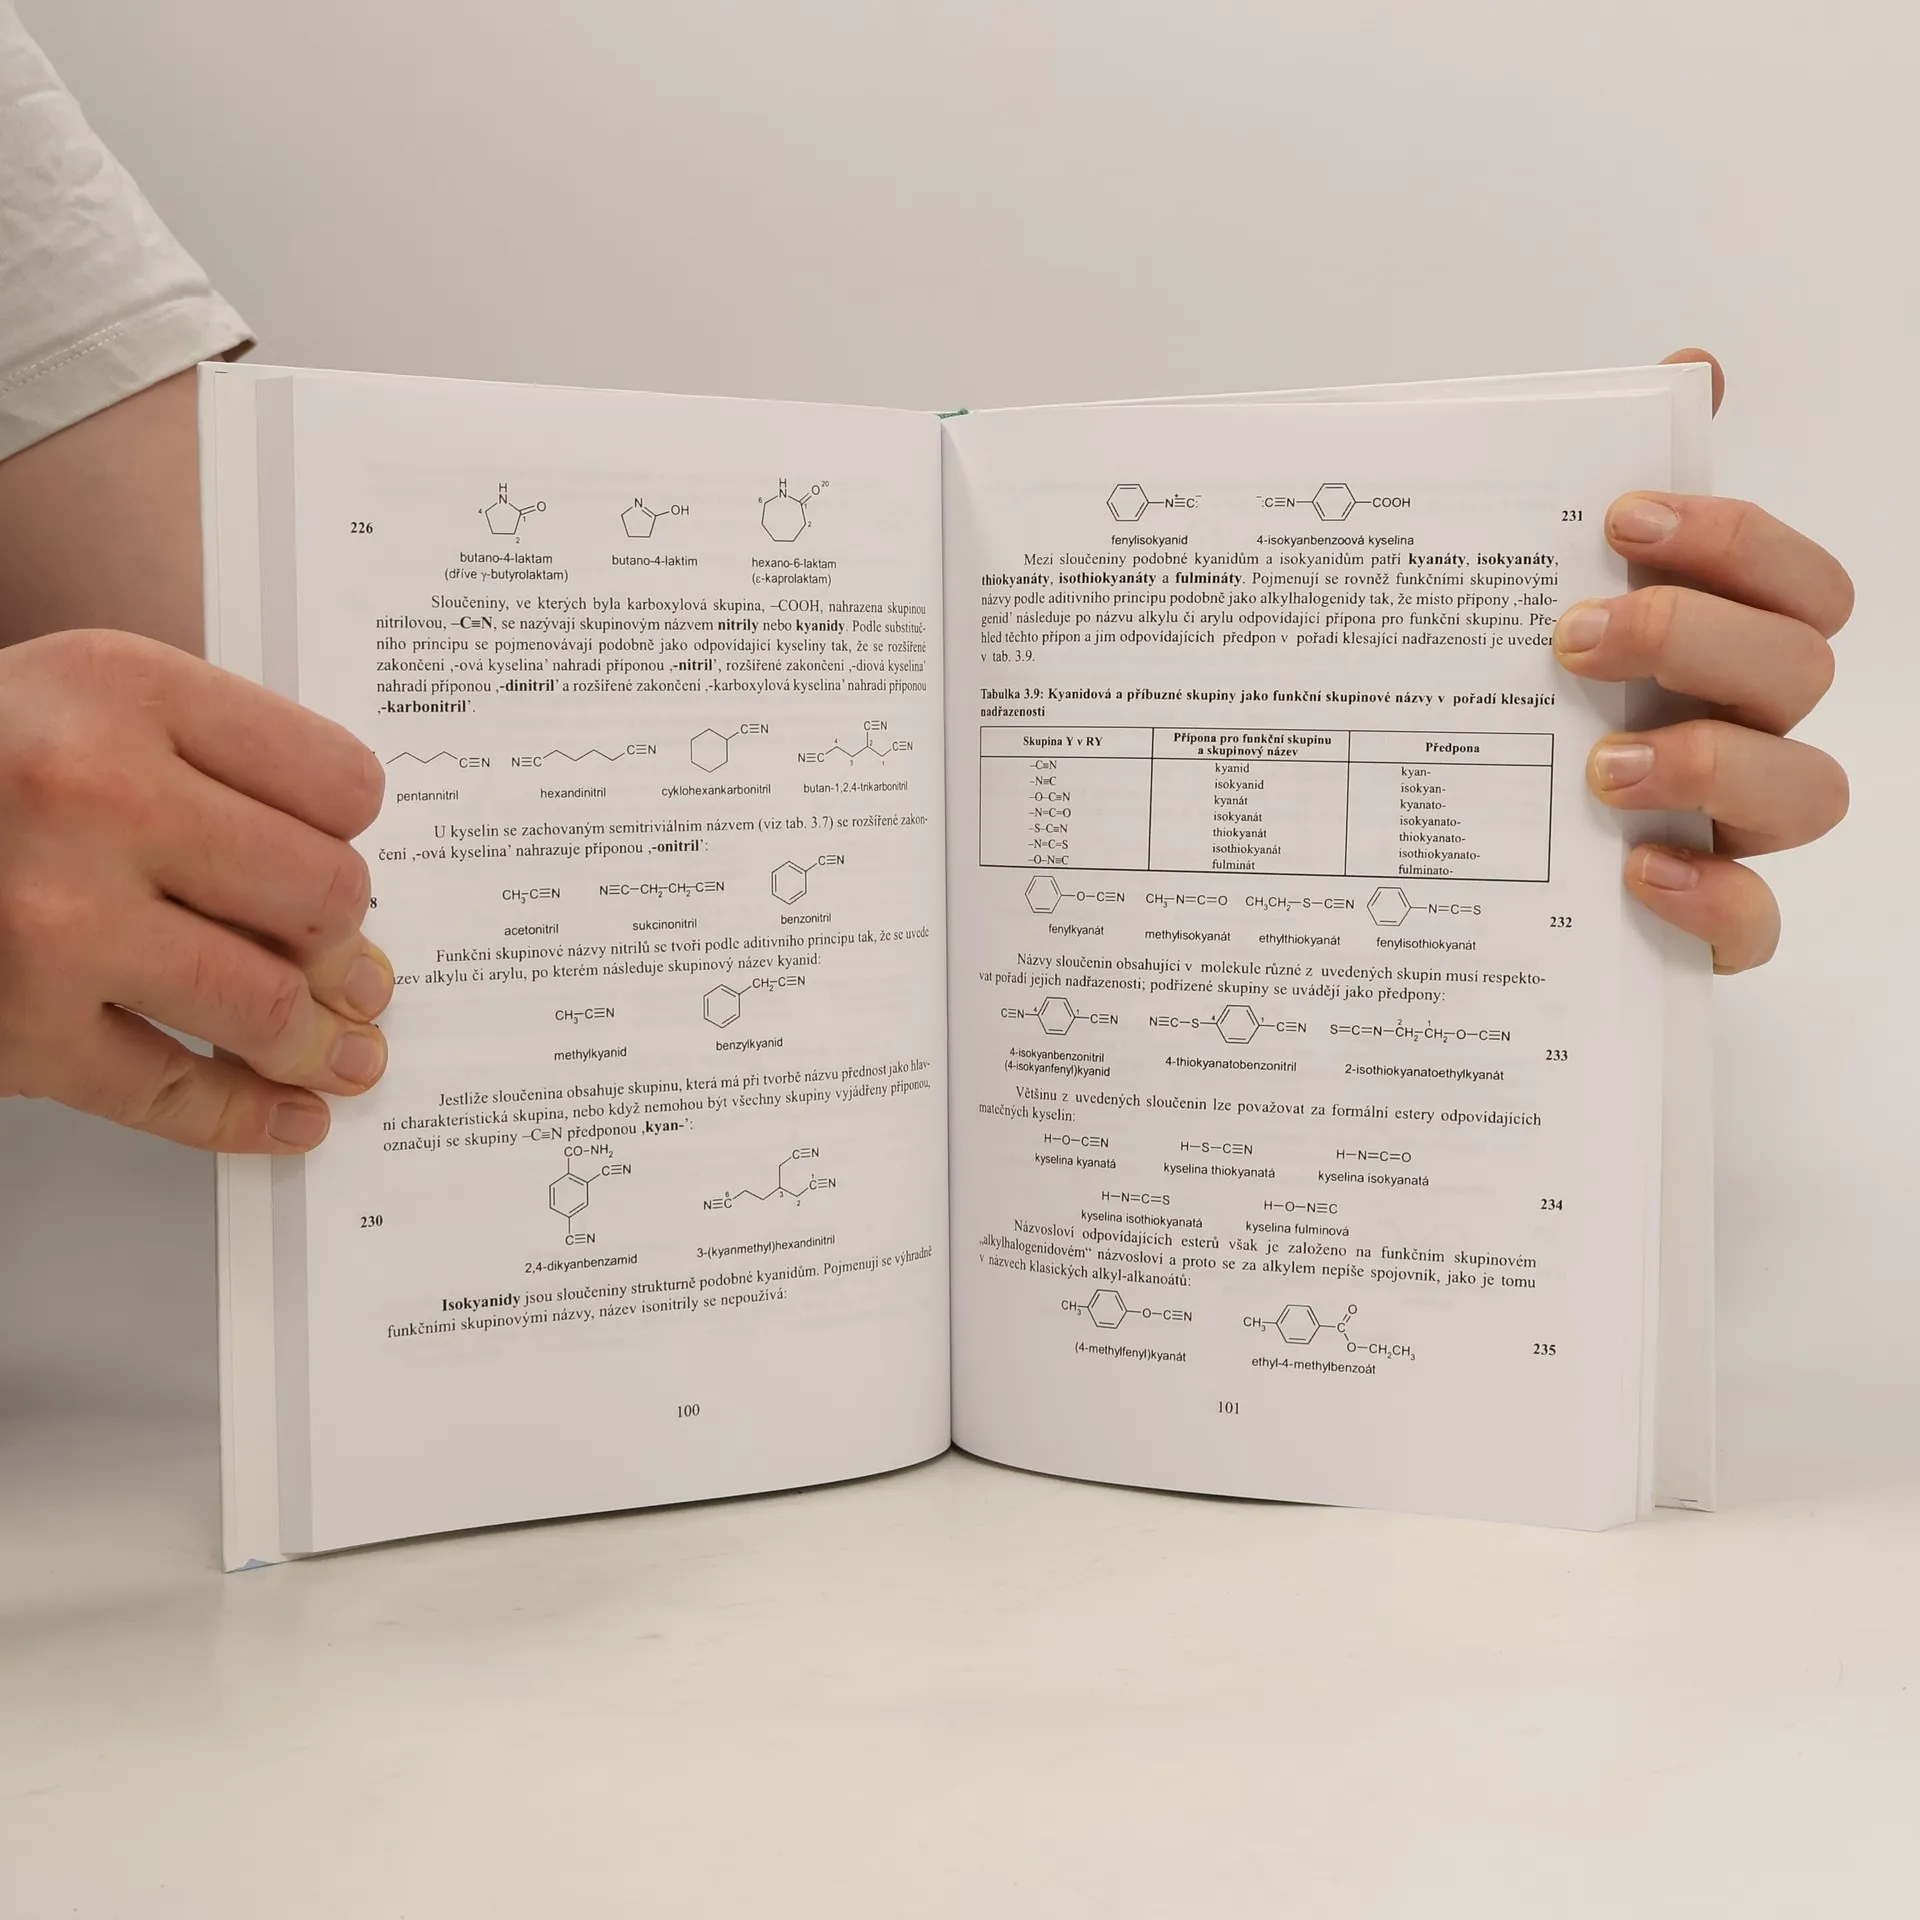 226
butano-4-laktam
(dříve γ-butyrolaktam)
butano-4-laktim
hexano-6-laktam
(ε-kaprolaktam)
Sloučeniny, ve kterých byla karboxylová skupina, –COOH, nahrazena skupinou
nitrilovou, –C≡N, se nazývají skupinovým názvem nitrily nebo kyanidy. Podle substituč-
ního principu se pojmenovávají podobně jako odpovídající kyseliny tak, že se rozšířené
zakončení ‚-ová kyselina’ nahradí příponou ‚-nitril’, rozšířené zakončení ‚-diová kyselina’
nahradí příponou ‚-dinitril’ a rozšířené zakončení ‚-karboxylová kyselina’ nahradí příponou
‚-karbonitril’.
C≡N N≡C C≡N C≡N N≡C C≡N C≡N
pentannitril hexandinitril cyklohexankarbonitril butan-1,2,4-trikarbonitril
U kyselin se zachovaným semitriviálním názvem (viz tab. 3.7) se rozšířené zakon-
čení ‚-ová kyselina’ nahrazuje příponou ‚-onitril’:
8
CH₃–C≡N N≡C–CH₂–CH₂–C≡N C≡N
acetonitril sukcinonitril benzonitril
Funkční skupinové názvy nitrilů se tvoří podle aditivního principu tak, že se uvede
zev alkylu či arylu, po kterém následuje skupinový název kyanid:
CH₃–C≡N CH₂–C≡N
methylkyanid benzylkyanid
Jestliže sloučenina obsahuje skupinu, která má při tvorbě názvu přednost jako hlav-
ní charakteristická skupina, nebo když nemohou být všechny skupiny vyjádřeny příponou,
označují se skupiny –C≡N předponou ‚kyan-’:
CO–NH₂ C≡N C≡N
N≡C C≡N C≡N
230
2,4-dikyanbenzamid 3-(kyanmethyl)hexandinitril
Isokyanidy jsou sloučeniny strukturně podobné kyanidům. Pojmenují se výhradně
funkčními skupinovými názvy, název isonitrily se nepoužívá:
100
–N≡C: :C≡N– –COOH
231
fenylisokyanid 4-isokyanbenzoová kyselina
Mezi sloučeniny podobné kyanidům a isokyanidům patří kyanáty, isokyanáty,
thiokyanáty, isothiokyanáty a fulmináty. Pojmenují se rovněž funkčními skupinovými
názvy podle aditivního principu podobně jako alkylhalogenidy tak, že místo přípony ‚-halo-
genid’ následuje po názvu alkylu či arylu odpovídající přípona pro funkční skupinu. Pře-
hled těchto přípon a jim odpovídajících předpon v pořadí klesající nadřazenosti je uveden
v tab. 3.9.
Tabulka 3.9: Kyanidová a příbuzné skupiny jako funkční skupinové názvy v pořadí klesající
nadřazenosti
Skupina Y v RY Přípona pro funkční skupinu a skupinový název Předpona
–C≡N kyanid kyan-
–N≡C isokyanid isokyan-
–O–C≡N kyanát kyanato-
–N=C=O isokyanát isokyanato-
–S–C≡N thiokyanát thiokyanato-
–N=C=S isothiokyanát isothiokyanato-
–O–N≡C fulminát fulminato-
–O–C≡N CH₃–N=C=O CH₃CH₂–S–C≡N –N=C=S
232
fenylkyanát methylisokyanát ethylthiokyanát fenylisothiokyanát
Názvy sloučenin obsahující v molekule různé z uvedených skupin musí respekto-
vat pořadí jejich nadřazenosti; podřízené skupiny se uvádějí jako předpony:
C≡N– –C≡N N≡C–S– –C≡N S=C=N–CH₂–CH₂–O–C≡N
233
4-isokyanbenzonitril
(4-isokyanfenyl)kyanid
4-thiokyanatobenzonitril
2-isothiokyanatoethylkyanát
Většinu z uvedených sloučenin lze považovat za formální estery odpovídajících
matečných kyselin:
H–O–C≡N H–S–C≡N H–N=C=O
kyselina kyanatá kyselina thiokyanatá kyselina isokyanatá
H–N=C=S H–O–N≡C
234
kyselina isothiokyanatá kyselina fulminová
Názvosloví odpovídajících esterů však je založeno na funkčním skupinovém
„alkylhalogenidovém“ názvosloví a proto se za alkylem nepíše spojovník, jako je tomu
v názvech klasických alkyl-alkanoátů:
CH₃– –O–C≡N CH₃– C O O–CH₂CH₃
235
(4-methylfenyl)kyanát ethyl-4-methylbenzoát
101